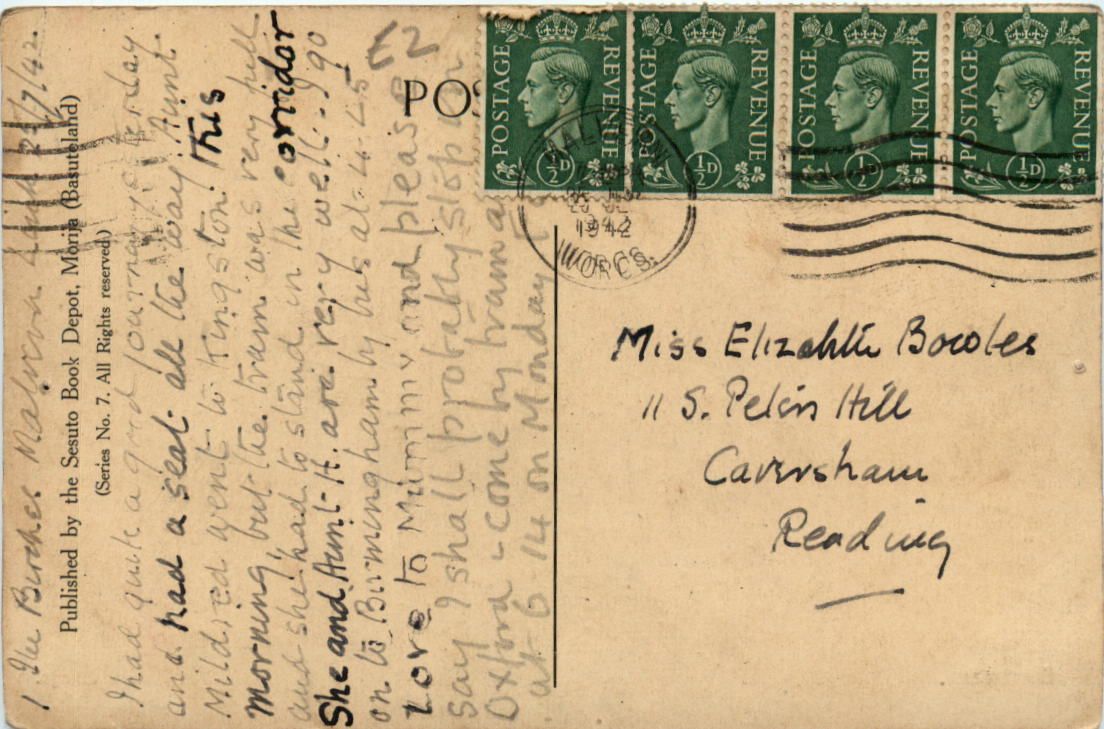 1 The Birches Malvern Link 25/7/42.
Published by the Sesuto Book Depot, Morija (Basutoland)
(Series No. 7. All Rights reserved.)
I had quite a good journey yesterday
and had a seat all the way Aunt.
Mildred went to Kingston. This
morning, but the train was very full
and she had to stand in the corridor
She and Aunt H. are very well. I go
on to Birmingham by bus at 4.45
Love to Mummy and please
say I shall probably stop in
Oxford & come by train
at 6-14 on Monday
E2
POS
POSTAGE REVENUE ½D
POSTAGE REVENUE ½D
POSTAGE REVENUE ½D
POSTAGE REVENUE ½D
MALVERN
1942
WORCS.
Miss Elizabeth Bowles
11 S. Peters Hill
Caversham
Reading